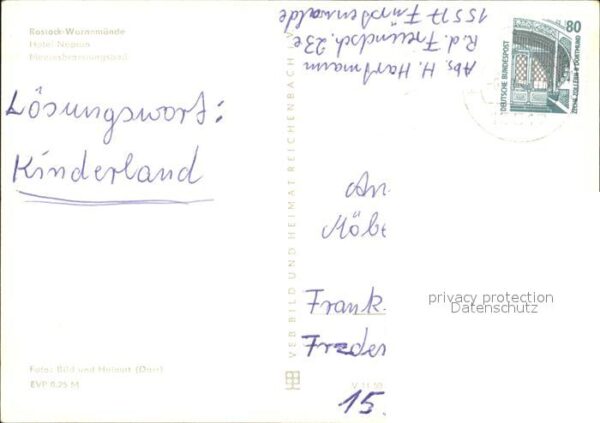 Rostock-Warnemünde
Hotel Neptun
Meeresbrandungsbad
Lösungswort:
Kinderland
Foto: Bild und Heimat (Darr)
EVP 0,25 M
VEB BILD UND HEIMAT REICHENBACH I. V.
V 11 50
Abs. H. Hartmann
R.d. Freundsch. 23e
15517 Fürstenwalde
80
DEUTSCHE BUNDESPOST
ZECHE ZOLLERN II DORTMUND
An
Möb
Frank.
15.
privacy protection
Datenschutz